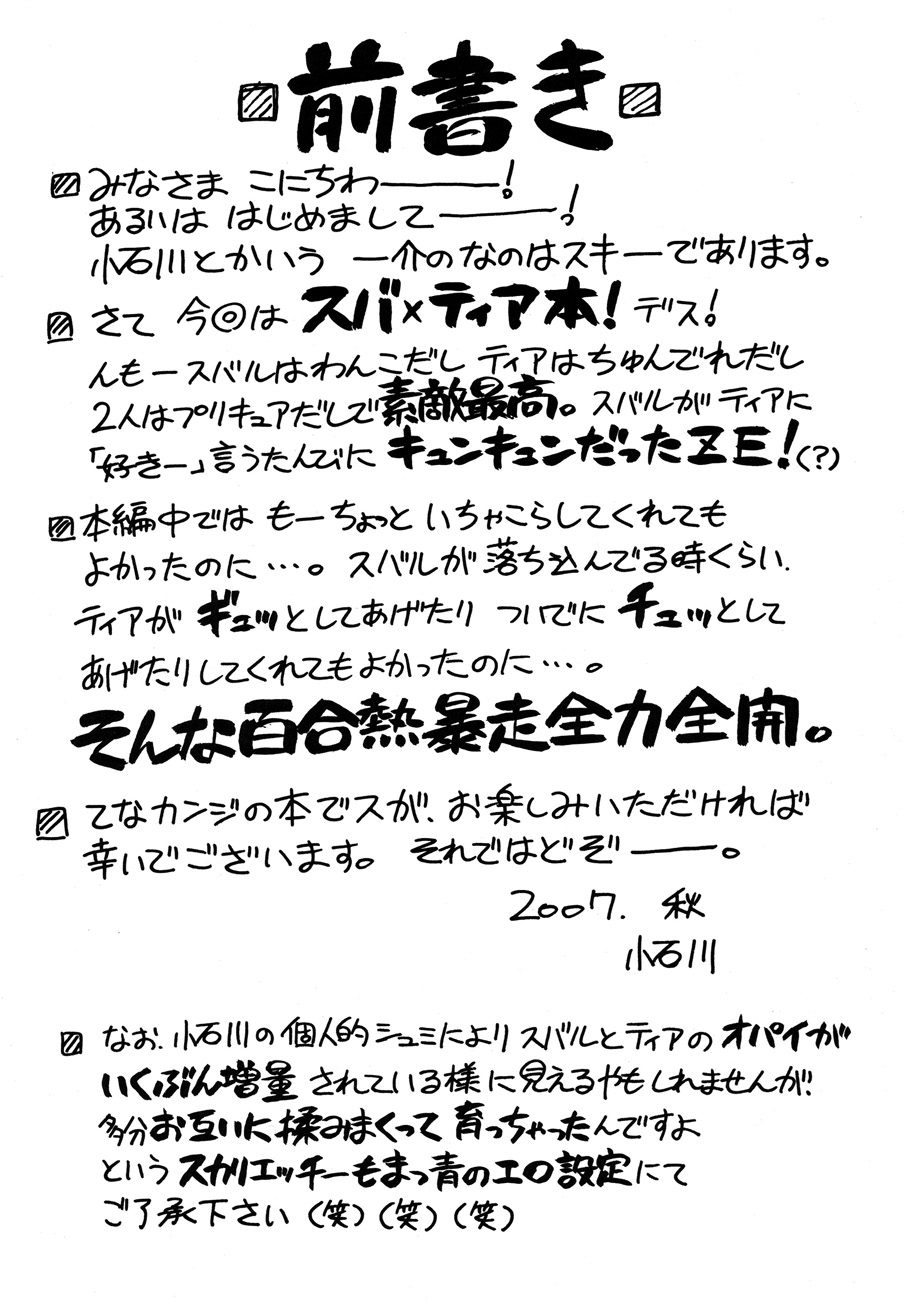 前書き
みなさま こにちわ―――!
あるいは はじめまして―――!
小石川とかいう 一介のなのはスキーであります。
さて 今◎は スバ×ティア本! デス!
んもースバルはわんこだし ティアはちゅんでれだし
2人はプリキュアだしで素敵最高。スバルがティアに
「好きー」言うたんびに キュンキュンだったZE!(?)
本編中では もーちょっと いちゃこらしてくれても
よかったのに…。スバルが落ち込んでる時くらい、
ティアが ギュッとしてあげたり ついでに チュッとして
あげたりしてくれてもよかったのに…。
そんな百合熱暴走全力全開。
てなカンジの本でスが、お楽しみいただければ
幸いでございます。 それではどぞ――。
2007. 秋
小石川
なお、小石川の個人的シュミにより スバルとティアの オパイが
いくぶん増量 されている様に見えるやもしれませんが!
多分お互いに揉みまくって 育っちゃったんですよ
という スカリエッチーもまっ青のエロ設定にて
ご了承下さい (笑)(笑)(笑)